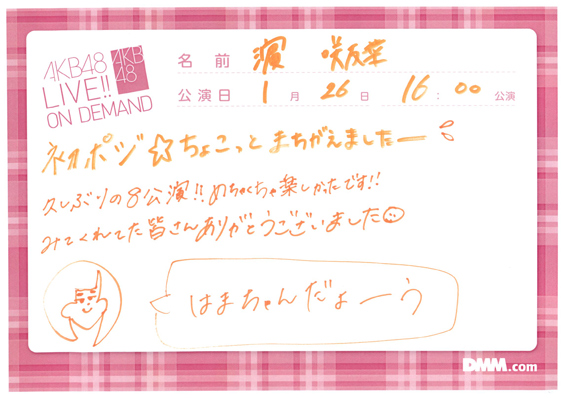 AKB48
LIVE!!
ON DEMAND
AKB
48
名前 濵 咲友菜
公演日 1月26日 16:00 公演
初ポジ☆ちょこっとまちがえましたー
久しぶりの8公演!!めちゃくちゃ楽しかったです!!
みてくれてた皆さんありがとうございました☺
はまちゃんだよーう
DMM.com